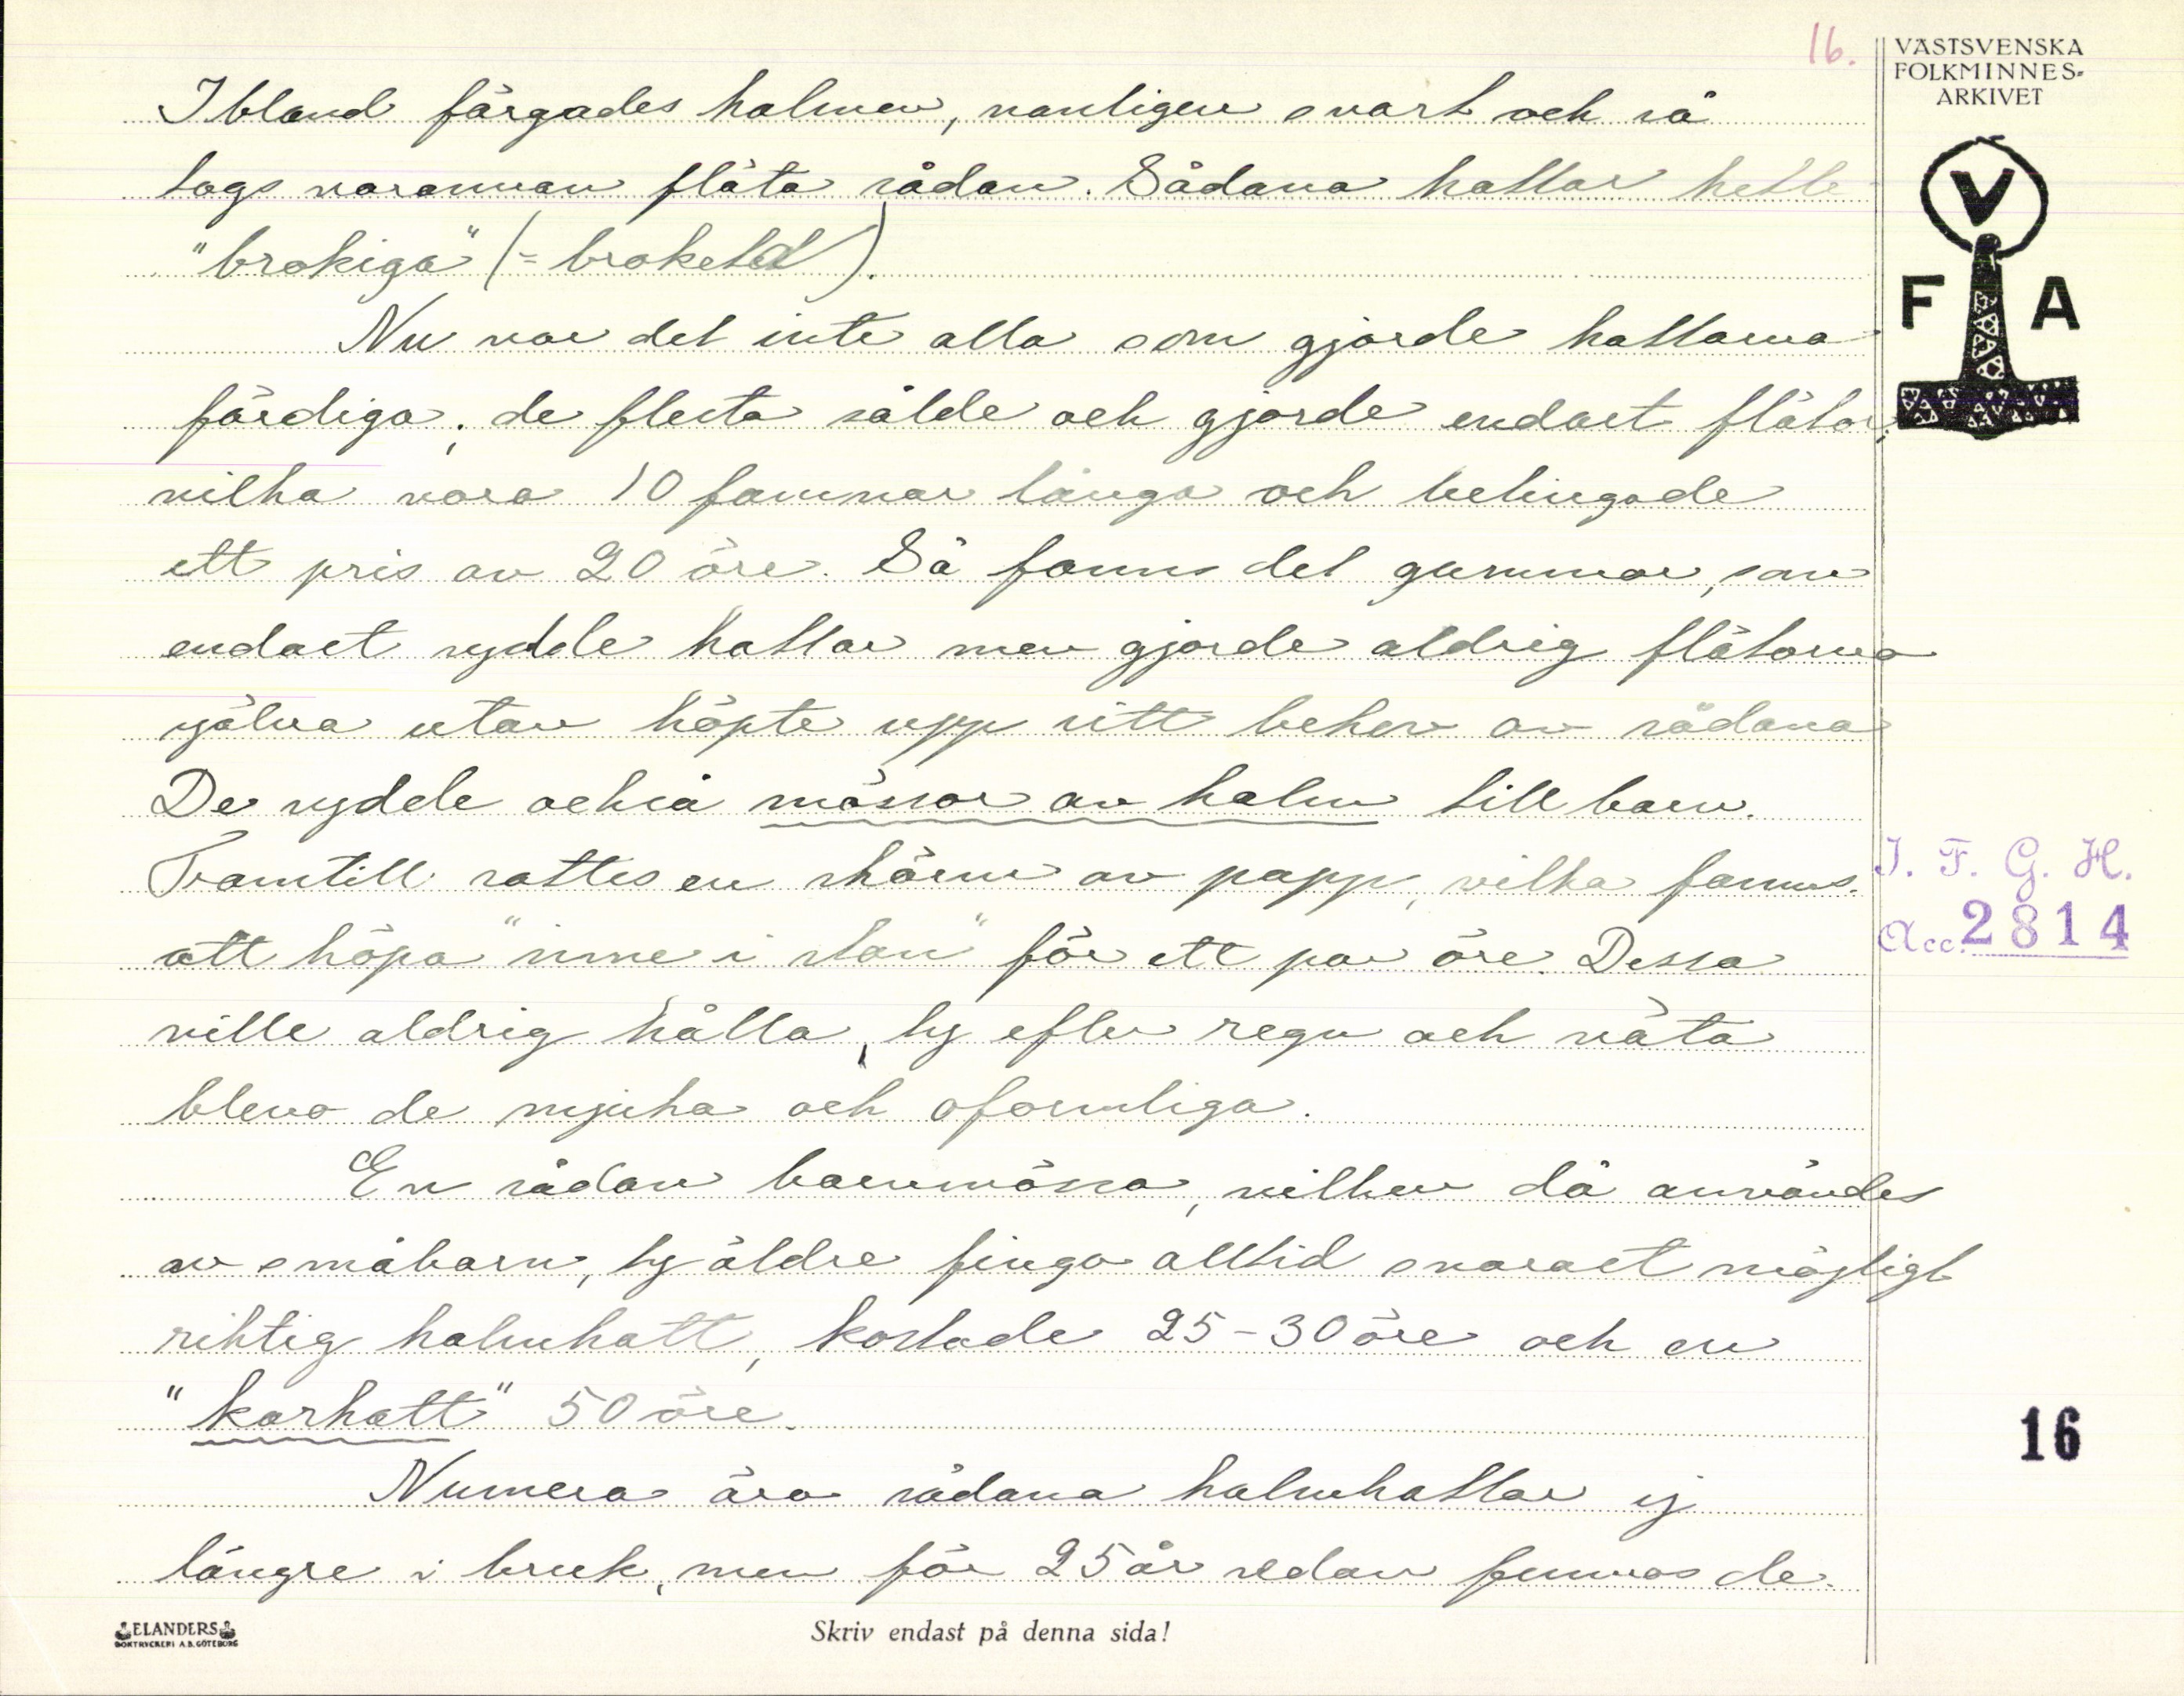 16.
VÄSTSVENSKA
FOLKMINNES-
ARKIVET
V
F A
Ibland färgades halmen, vanligen svart och så
togs varannan fläta sådan. Sådana hattar hette
"brokiga" (= broketa).
Nu var det inte alla som gjorde hattarna
färdiga; de flesta sålde och gjorde endast flätor,
vilka voro 10 famnar långa och betingade
ett pris av 20 öre. Så fanns det gummor, som
endast sydde hattar men gjorde aldrig flätorna
själva utan köpte upp sitt behov av sådana
De sydde också mössor av halm till barn.
Framtill sattes en skärm av papp, vilka fanns
att köpa "inne i stan" för ett par öre. Dessa
ville aldrig hålla, ty efter regn och väta
blevo de mjuka och oformliga.
En sådan barnmössa, vilken då användes
av småbarn, ty äldre fingo alltid snarast möjligt
riktig halmhatt, kostade 25-30 öre och en
"karhatt" 50 öre.
Numera äro sådana halmhattar ej
längre i bruk, men för 25 år sedan funnos de
I. F. G. H.
Acc. 2814
16
ELANDERS
BOKTRYCKERI A.B. GÖTEBORG
Skriv endast på denna sida!